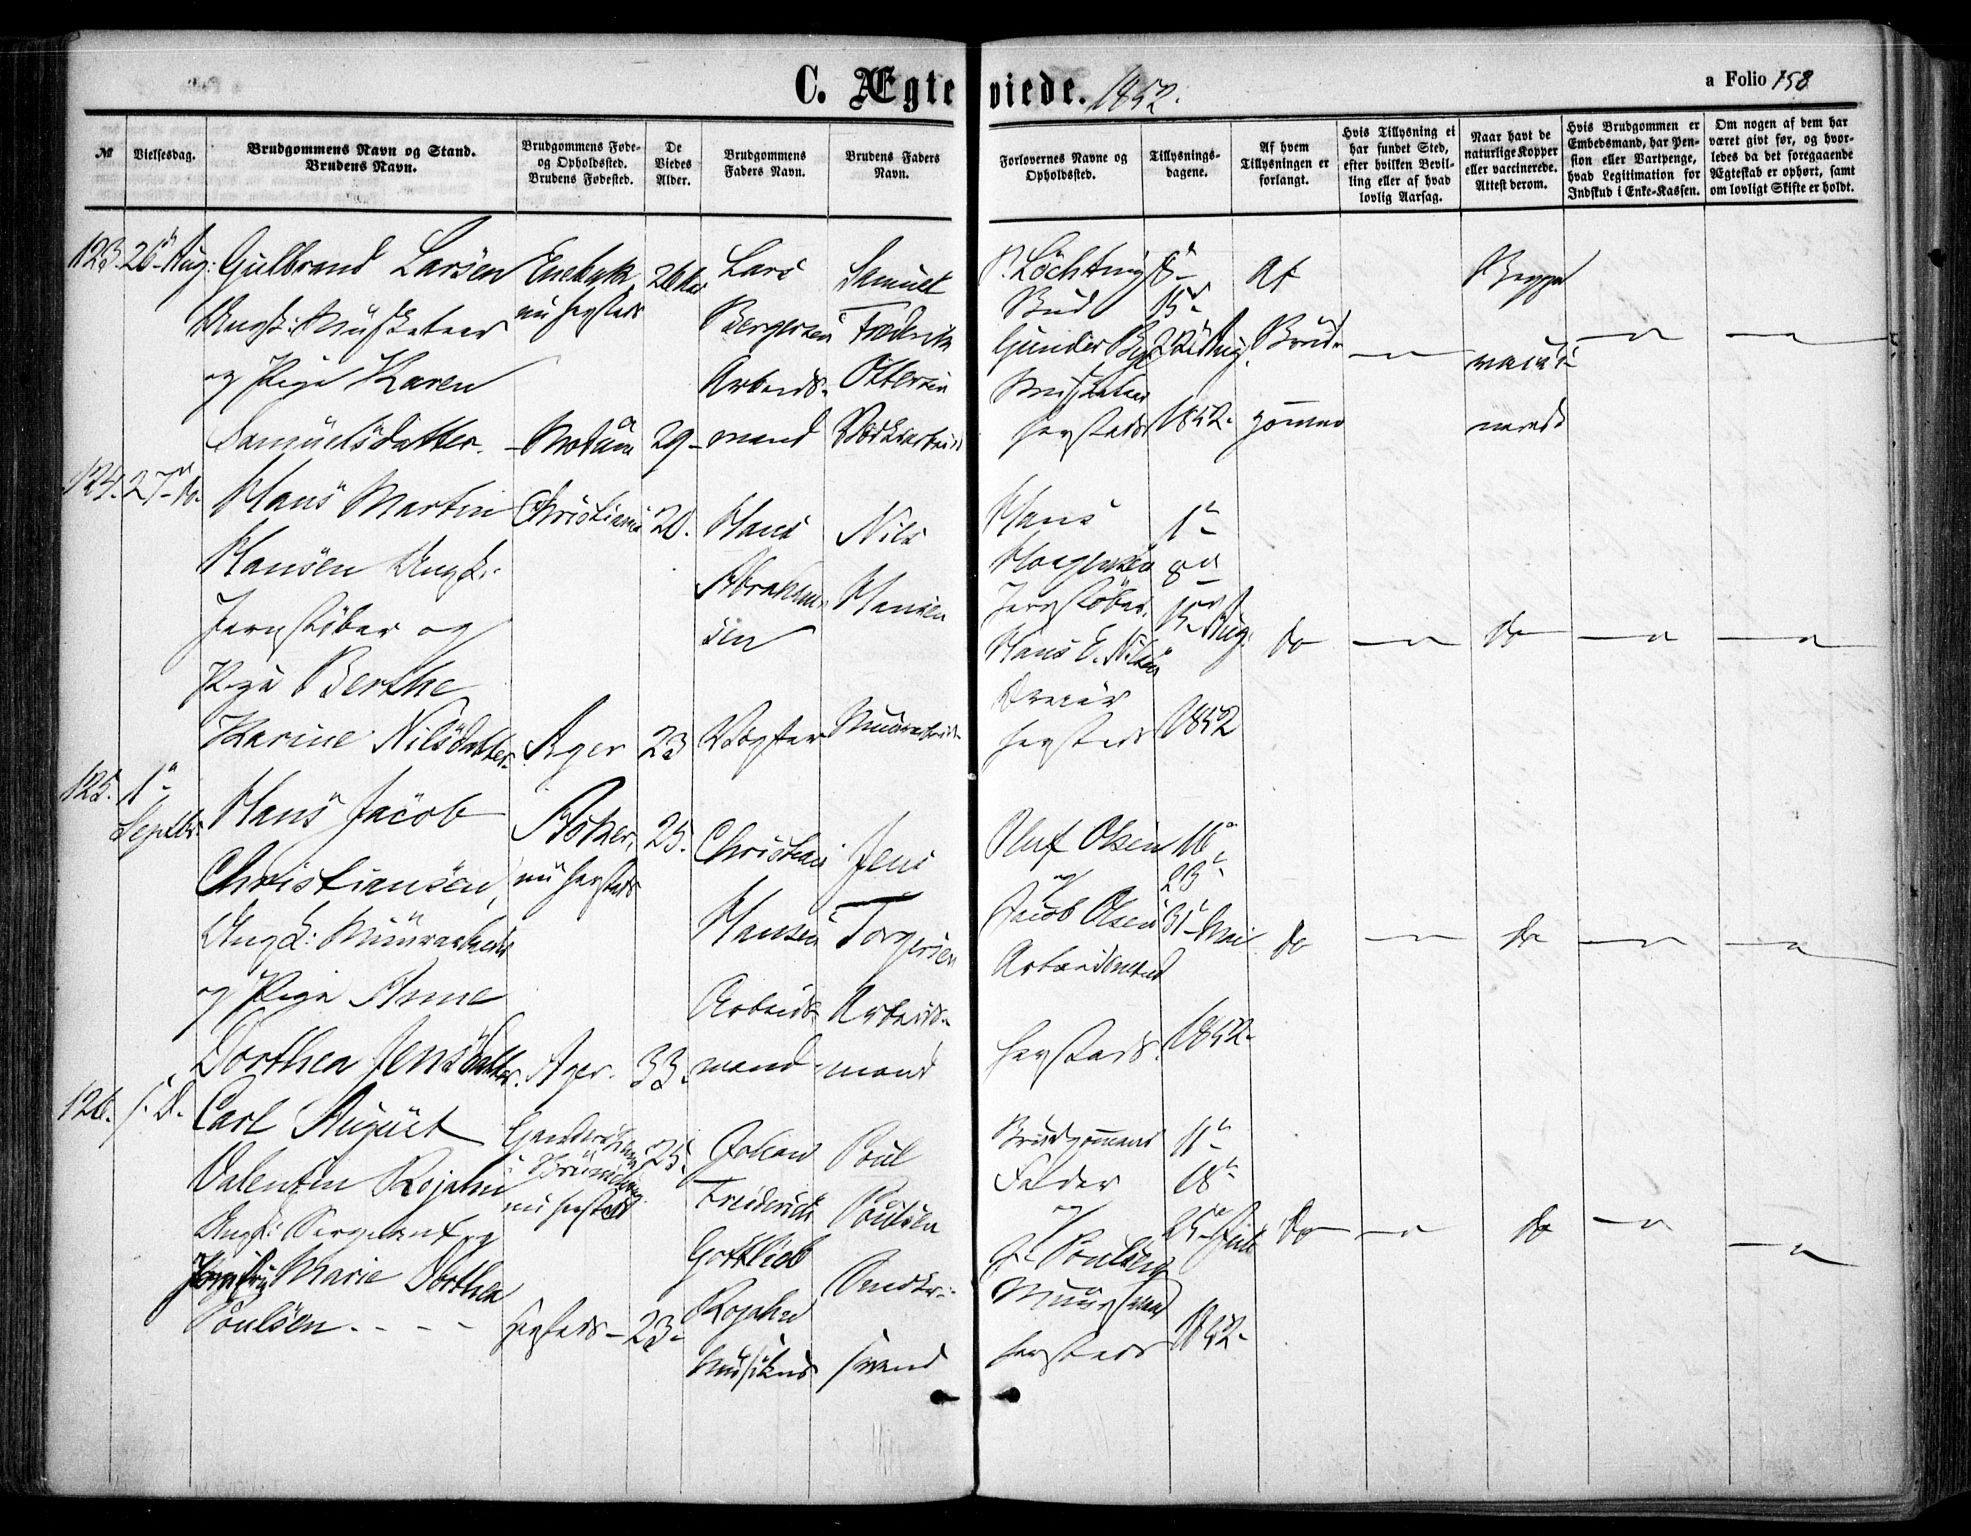 C. Ægteviede. 1852.
a Folio 158
№
Vielsesdag.
Brudgommens Navn og Stand.
Brudens Navn.
Brudgommens Føde-
og Opholdssted.
Brudens Fødested.
De
Viedes
Alder.
Brudgommens
Faders Navn.
Brudens Faders
Navn.
Forlovernes Navne og
Opholdssted.
Tillysnings-
dagene.
Af hvem
Tillysningen er
forlangt.
Hvis Tillysning ei
har fundet Sted,
efter hvilken Bevil-
ling eller af hvad
lovlig Aarsag.
Naar havt de
naturlige Kopper
eller vaccinerede.
Attest derom.
Hvis Brudgommen er
Embedsmand, har Pen-
sion eller Vartpenge,
hvad Legitimation for
Indskud i Enke-Kassen.
Om nogen af dem har
været givt før, og hvor-
ledes da det foregaaende
Ægteskab er ophørt, samt
om lovligt Skifte er holdt.
123. 26 Aug:
Gulbrand Larsen
Ungk: Musketeer
og Pige Karen
Samuelsdatter.
Enebak
nu hersteds
- Modum
26
29 -
Lars
Bergersen
Arbeids-
mand
Samuel
Frederik
Ottersen
P. Löchting
Bud
Gunder
Musketeer
hersteds
8
15
22 Aug.
1852.
Af
Brud-
gommen
Begge
vacci-
nerede
124. 27
Hans Martin
Hansen Ungk:
Jernstöber og
Pige Berthe
Karine Nilsdatter
Christiania
Ager
20.
23
Hans
Abraham-
sen
Vægter
Nils
Hansen
Hans
Jernstöber
Hans E. Nilsen
hersteds
1
8
15 Aug:
1852
do
do
125. 1
Septbr
Hans Jacob
Christiansen,
Ungk: Muurarbeider
og Pige Anne
Dorthea Jensdatter.
Asker,
nu hersteds
Ager.
25.
33.
Christian
Hansen
Arbeids-
mand
Jens
Torgersen
Arbeids-
mand
Oluf Olsen
og
Jacob Olsen
Arbeidsmænd
hersteds.
16
23
31 Mai
1852.
do
do
126. D.
Carl August
Valentin Rojahn
Ungk: Sergeant og
Jomfru Marie Dorthea
Poulsen
nu hersteds
hersteds -
25.
23 -
Johan
Freiderich
Gottlieb
Rojahn
Musikus
Poul
Poulsen
Snedker-
svend
Brudgommens
Fader
og
Poulsen
hersteds
11
18
25 Juli
1852.
do
do